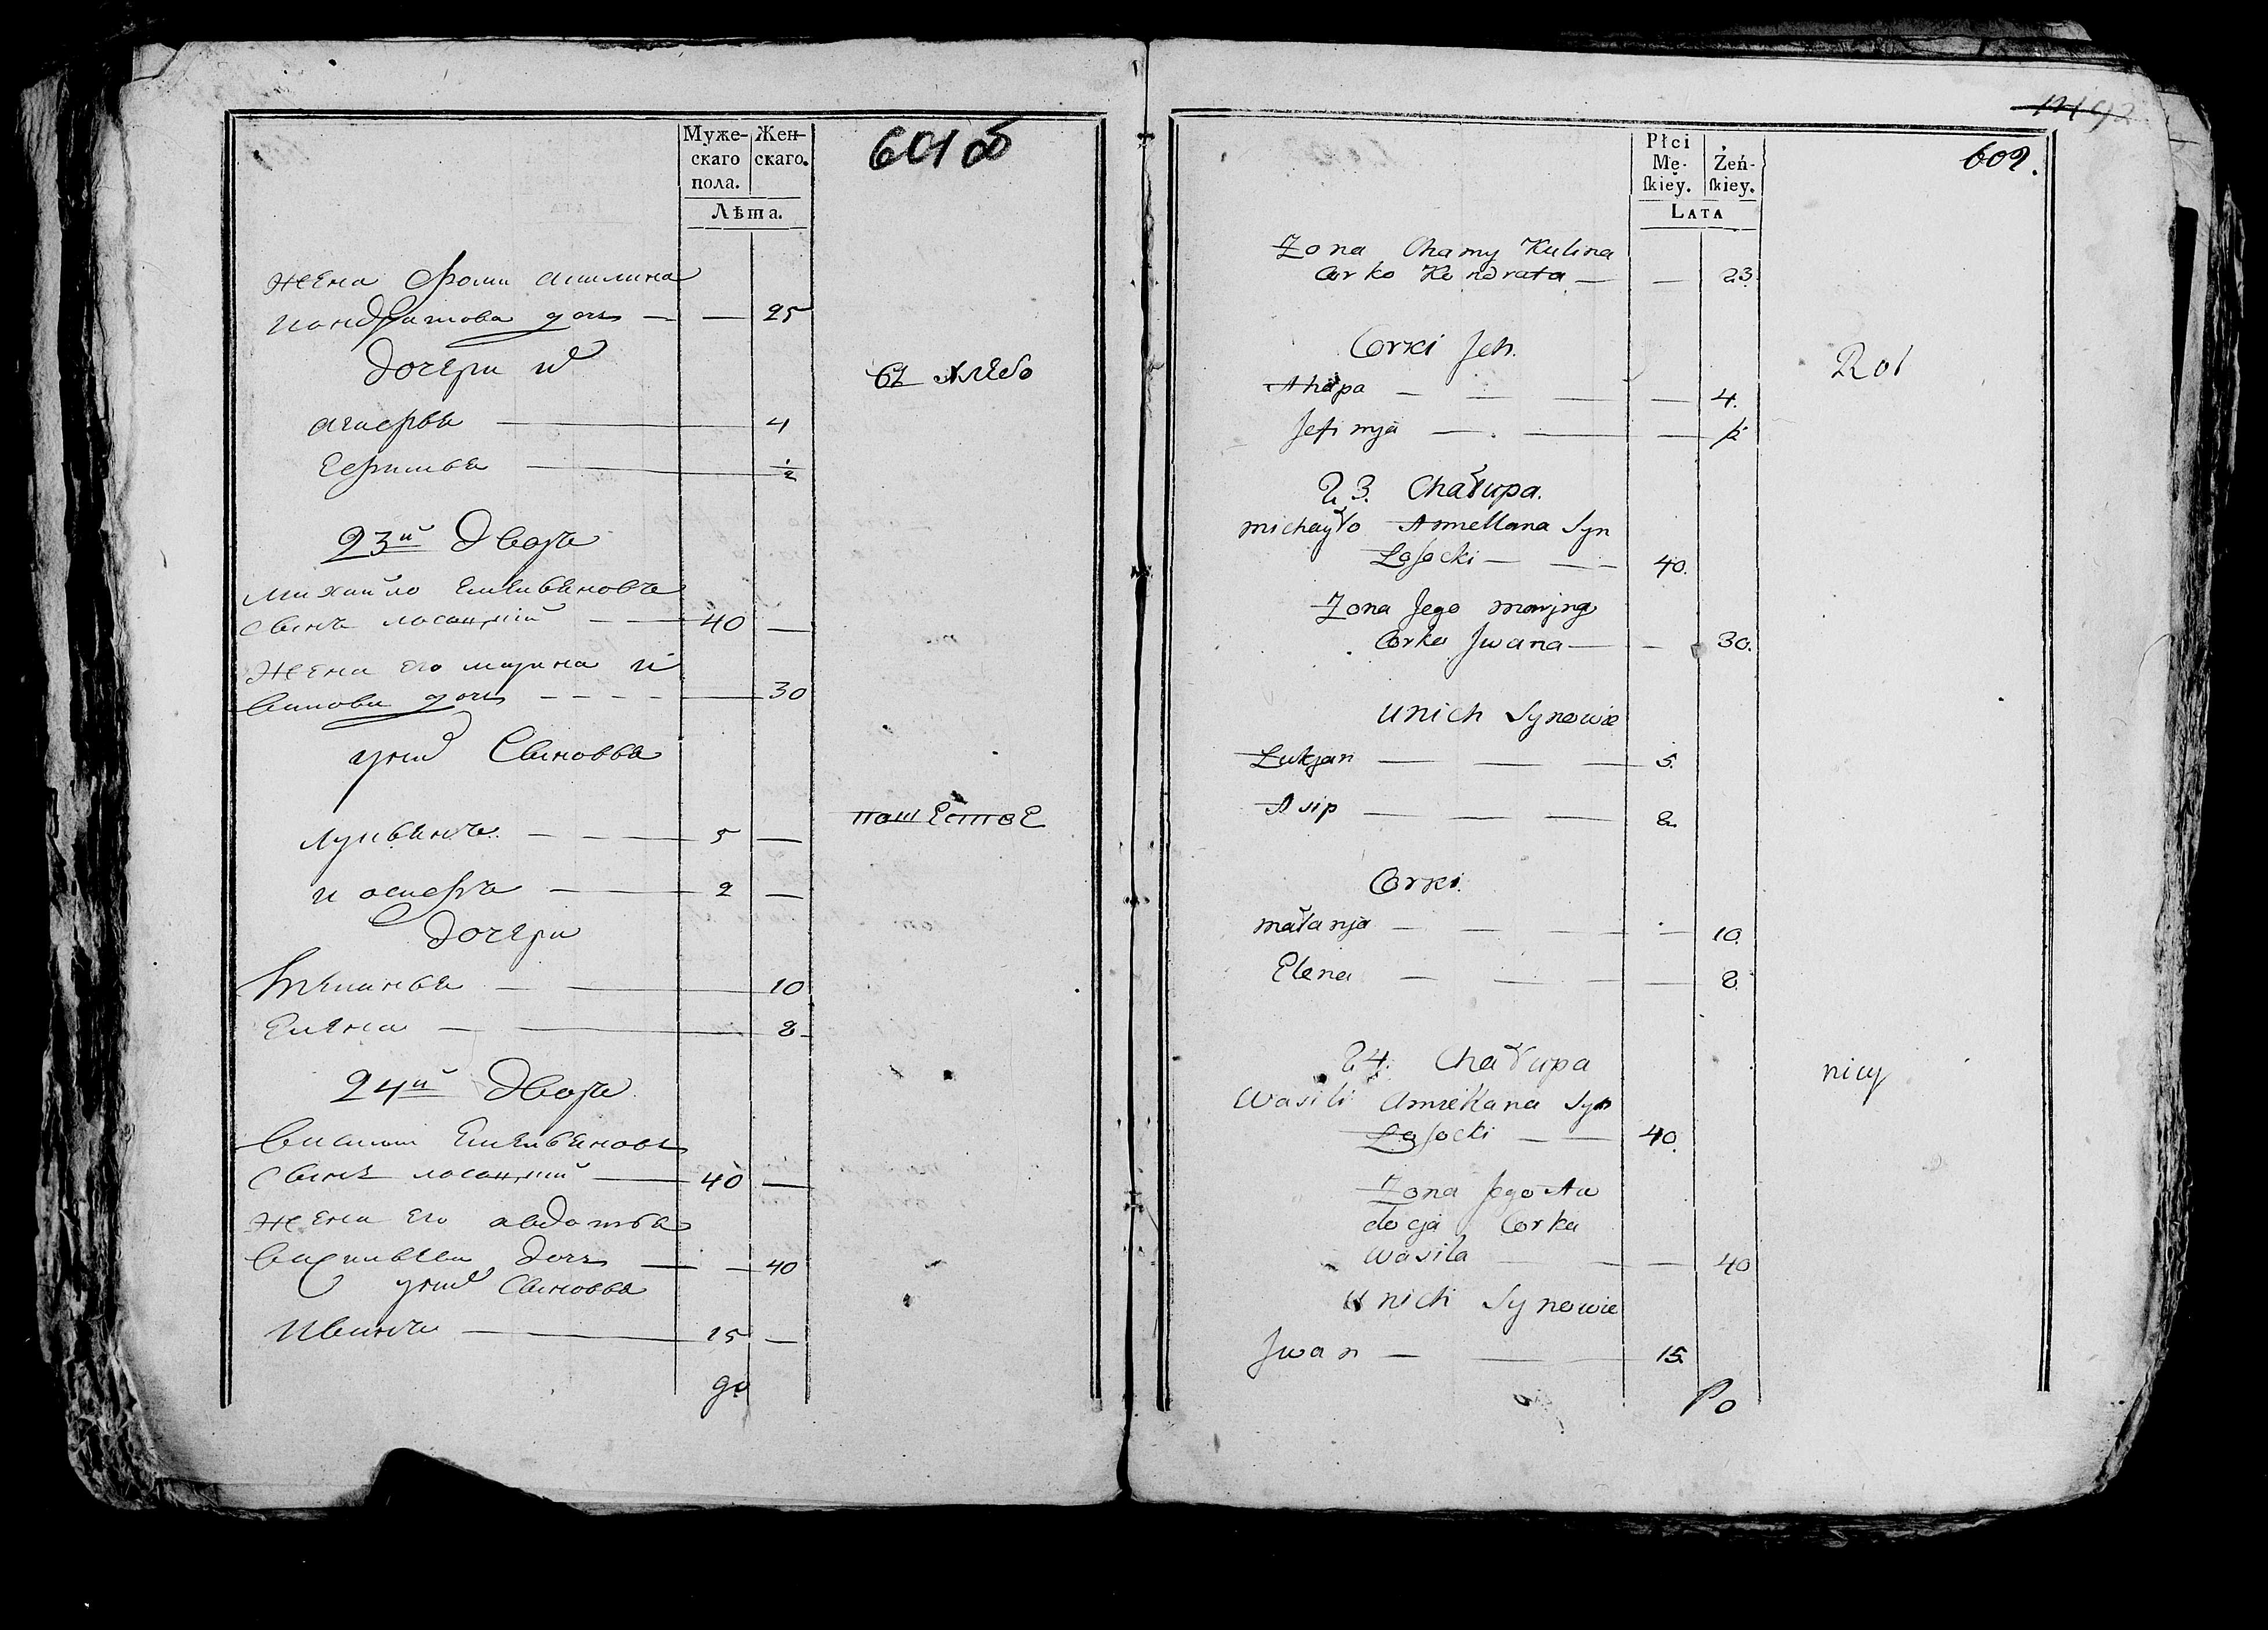 601 об
Муже- Жен-
скаго скаго.
пола.
Лѣта.
жена Фомы акилина
кондратова дочь — — 25
дочери их
агафья — 4
Ефимья — ½
хлебо
23й Дворъ
михайло Емельяновъ
сынъ лосоцкий — 40 —
жена его марина и
ванова дочь — 30
у них Сыновья
лукьянъ — 5 —
пашестве
и осифъ — 2 —
дочери
10
Елена — 8
24й Дворъ
василий Емельяновъ
сынъ лосоцкий — 40 —
жена его авдотья
васильева дочь — — 40
у них Сыновья
Иванъ — 15 —
до
602.
Płci
Mę- Żeń-
skiey. skiey.
LATA
Zona Chamy Kulina
Corka Kondrata — — 23.
Corki Jch.
Rot
Ahapa — — — — 4.
Jefimja — — — ½
23. Chałupa.
michayło Amellana Syn
Łosocki — — 40.
Zona Jego marjna
Corka Jwana — — 30.
u nich Synowie
Łukjan — — — 5.
Asip — — — 2.
Corki.
małanja — — — — 10.
Elena — — — — 8.
24. Chałupa
nicy
Wasili Amiellana Syn
Łosocki — — 40.
Zona Jego Au
docja Corka
Wasila — — — 40
u nich Synowie
Jwan — — 15.
Po